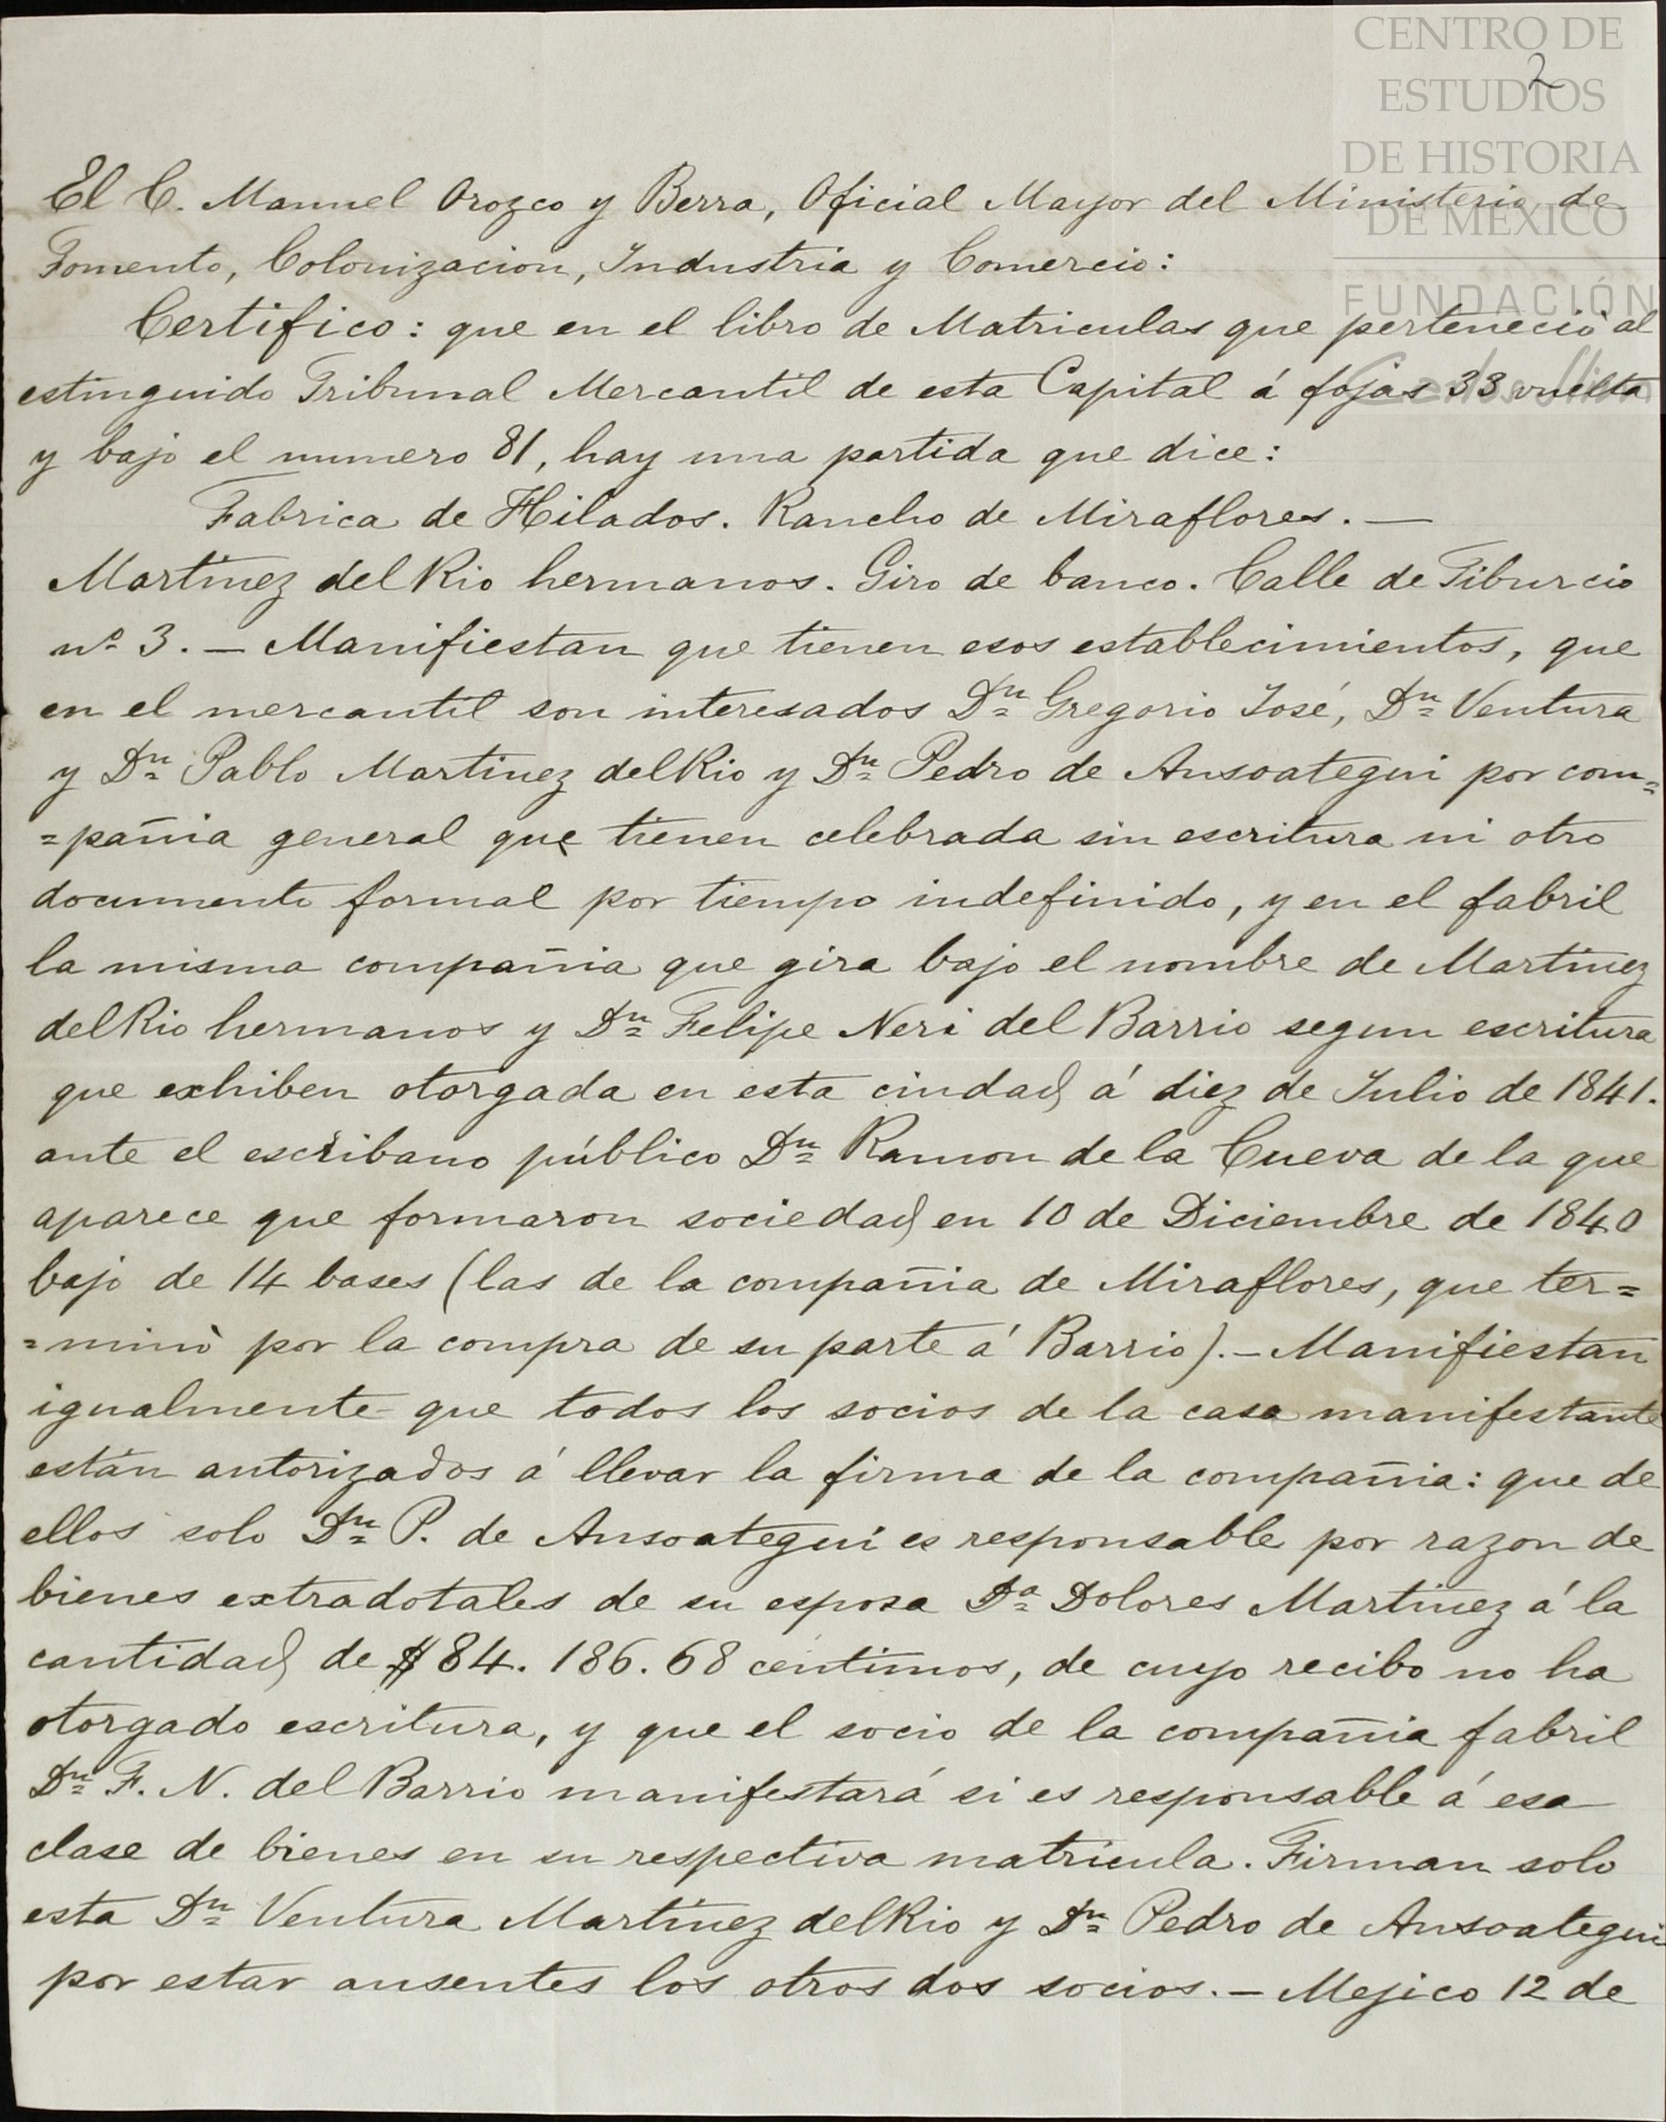 CENTRO DE
ESTUDIOS
DE HISTORIA
DE MÉXICO
FUNDACIÓN
2
El C. Manuel Orozco y Berra, Oficial Mayor del Ministerio de
Fomento, Colonizacion, Industria y Comercio:
Certifico: que en el libro de Matriculas que perteneció al
estinguido Tribunal Mercantil de esta Capital á fojas 33 vuelta
y bajo el numero 81, hay una partida que dice:
Fabrica de Hilados. Rancho de Miraflores. —
Martinez del Rio hermanos. Giro de banco. Calle de Tiburcio
nº 3. — Manifiestan que tienen esos establecimientos, que
en el mercantil son interesados Dn Gregorio José, Dn Ventura
y Dn Pablo Martinez del Rio y Dn Pedro de Ansoategui por com=
=pañia general que tienen celebrada sin escritura ni otro
documento formal por tiempo indefinido, y en el fabril
la misma compañia que gira bajo el nombre de Martinez
del Rio hermanos y Dn Felipe Neri del Barrio segun escritura
que exhiben otorgada en esta ciudad á diez de Julio de 1841.
ante el escribano público Dn Ramon de la Cueva de la que
aparece que formaron sociedad en 10 de Diciembre de 1840
bajo de 14 bases (las de la compañia de Miraflores, que ter=
=minò por la compra de su parte á Barrio). — Manifiestan
igualmente que todos los socios de la casa manifestante
están autorizados á llevar la firma de la compañia: que de
ellos solo Dn P. de Ansoategui es responsable por razon de
bienes extradotales de su esposa Da Dolores Martinez á la
cantidad de $84.186.68 centimos, de cuyo recibo no ha
otorgado escritura, y que el socio de la compañia fabril
Dn F. N. del Barrio manifestará si es responsable á esa
clase de bienes en su respectiva matricula. Firman solo
esta Dn Ventura Martinez del Rio y Dn Pedro de Ansoategui
por estar ausentes los otros dos socios. — Mejico 12 de